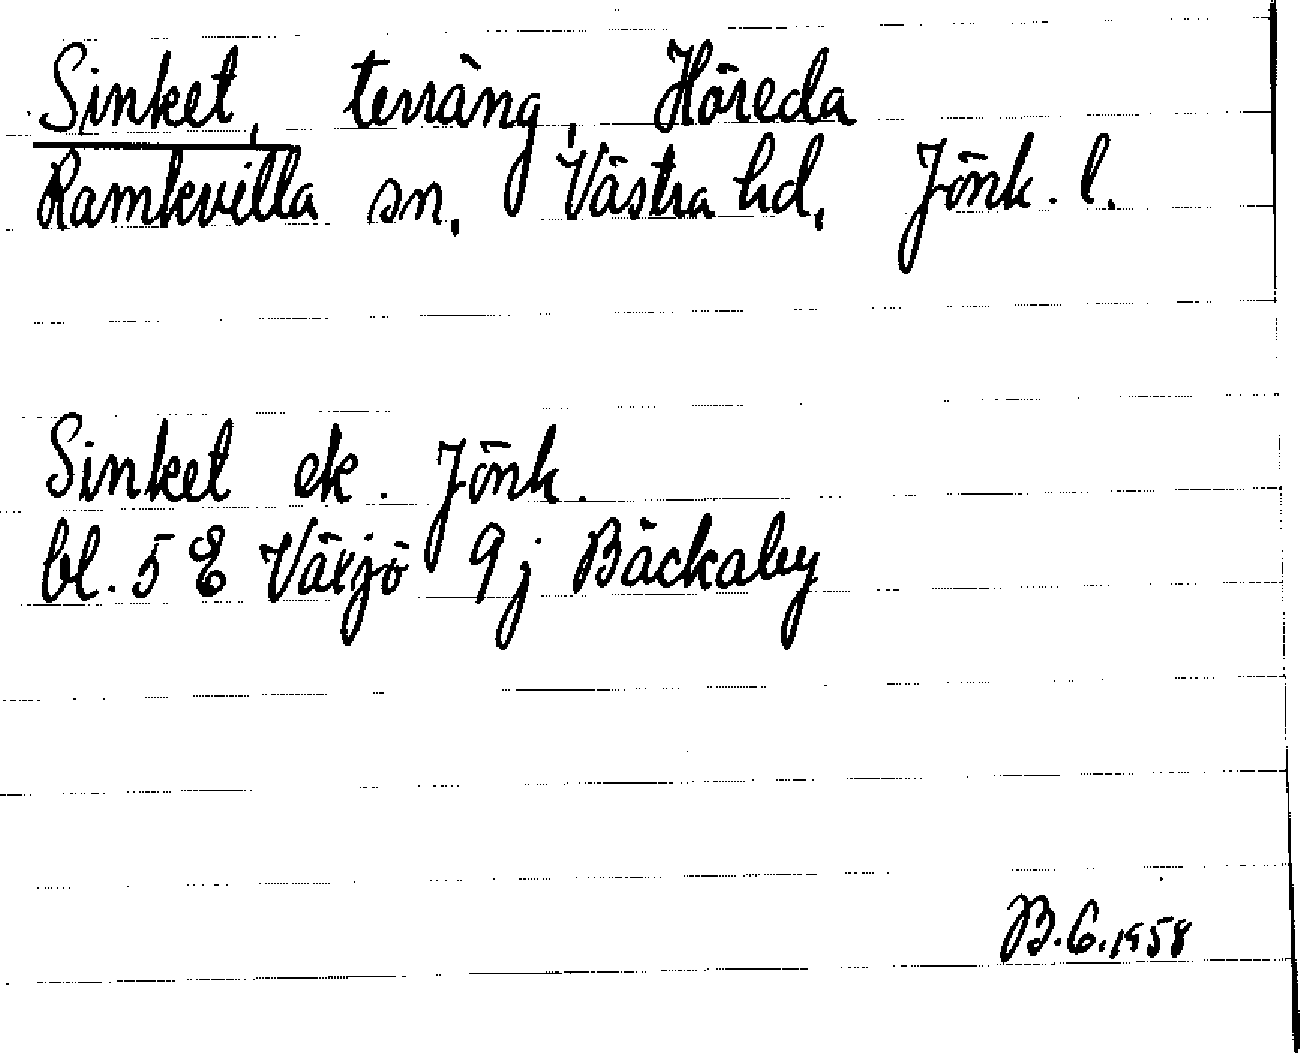 Sinket, terräng, Höreda
Ramkvilla sn, Västra hd, Jönk. l.
Sinket ek. Jönk.
bl. 5 E Växjö 9j Bäckaby
B.G. 1958